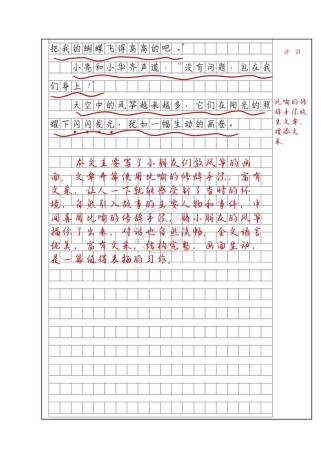 把我的蝴蝶飞得高高的吧。"
小亮和小华齐声道："没有问题，包在我
们身上！"
天空中的风筝越来越多，它们在阳光的照
耀下闪闪发光，犹如一幅生动的画卷。
评语
比喻的修
辞手法收
束文章，
增添文
采。
本文主要写了小朋友们放风筝的画
面。文章开篇便用比喻的修辞手法，富有
文采，让人一下就能感受到了当时的环
境，自然引入故事的主要人物和事件，中
间善用比喻的修辞手法，将小朋友的风筝
描绘了出来，对话也自然流畅，全文语言
优美，富有文采，结构完整，画面生动，
是一篇值得表扬的习作。